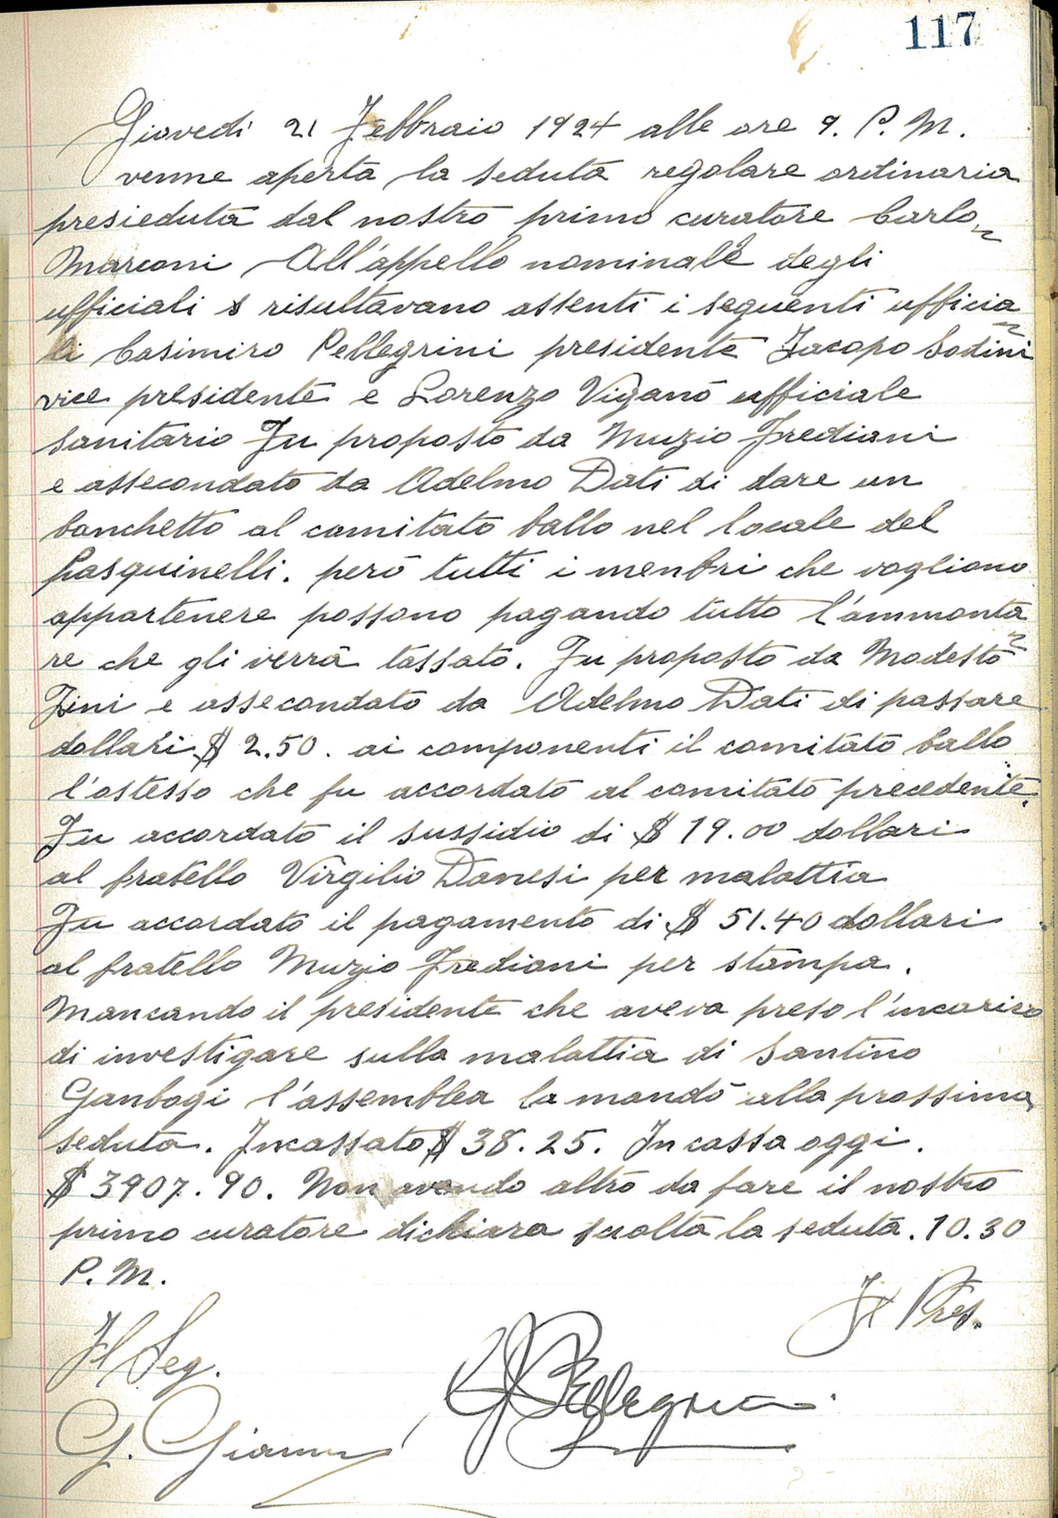 117
Giovedi 21 Febbraio 1924 alle ore 9. P. M.
venne aperta la seduta regolare ordinaria
presieduta dal nostro primo curatore Carlo
Marconi All'appello nominale degli
ufficiali s risultavano assenti i seguenti ufficia
li Casimiro Pellegrini presidente Jacopo Sodini
vice presidente e Lorenzo Viganó ufficiale
sanitario Fu proposto da Muzio Frediani
e assecondato da Adelmo Dati di dare un
banchetto al comitato ballo nel locale del
Pasquinelli. peró tutti i menbri che vogliono
appartenere possono pagando tutto l'ammonta
re che gli verrá tassato. Fu proposto da Modesto
Fini e assecondato da Adelmo Dati di passare
dollari $ 2.50. ai componenti il comitato ballo
l'ostesso che fu accordato al comitato precedente.
Fu accordato il sussidio di $ 19.00 dollari
al fratello Virgilio Danesi per malattia
Fu accordato il pagamento di $ 51.40 dollari
al fratello Muzio Frediani per stampa.
Mancando il presidente che aveva preso l'incarico
di investigare sulla malattia di Santino
Ganbogi l'assemblea la mandó alla prossima
seduta. Incassato $ 38.25. In cassa oggi.
$ 3907.90. Non avendo altro da fare il nostro
primo curatore dichiara sciolta la seduta. 10.30
P. M.
Il Pres.
Il Seg.
Pellegrini
G. Giannini